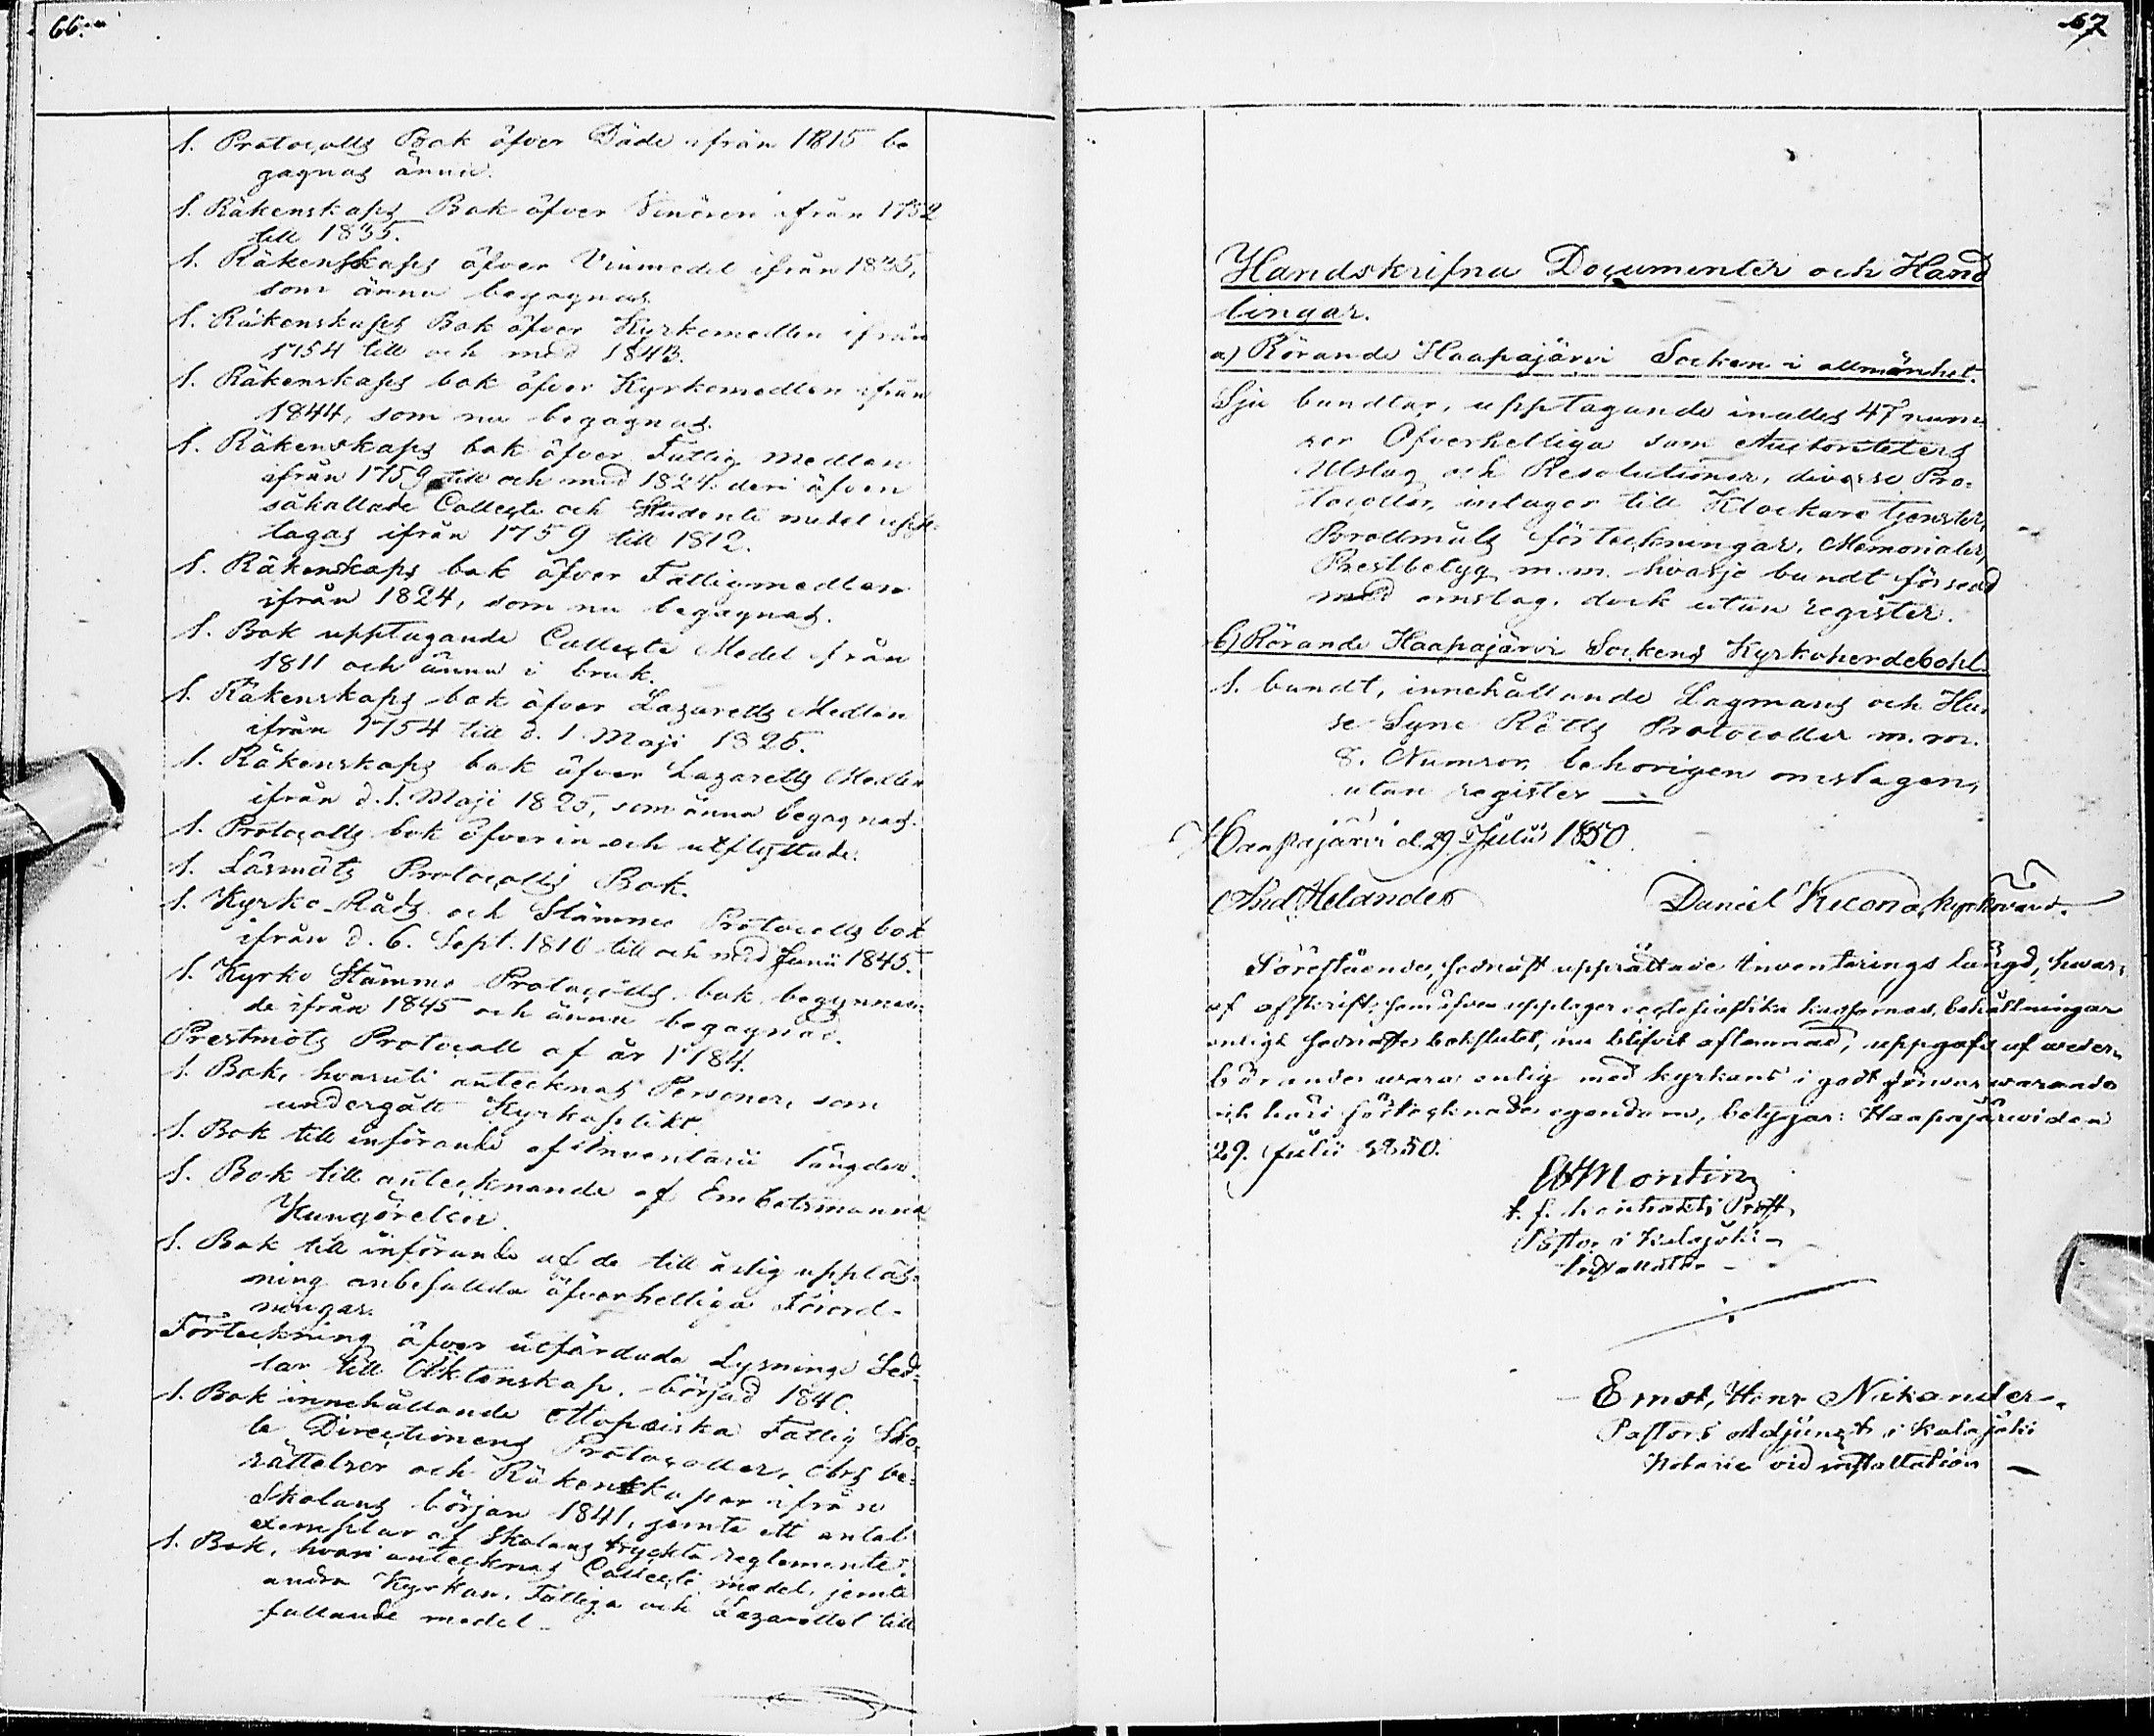 66.
1. Protocolls Bok öfver Döde ifrån 1815 be
gagnas ännu.
1. Räkenskaps Bok öfver Vinören ifrån 1752
till 1835.
1. Räkenskaps öfver Vinmedel ifrån 1835,
som ännu begagnas.
1. Räkenskaps Bok öfver Kyrkomedlen ifrån
1754 till och med 1843.
1. Räkenskaps bok öfver Kyrkomedlen ifrån
1844, som nu begagnas.
1. Räkenskaps bok öfver Fattig medlen
ifrån 1759 till och med 1824. deri äfven
såkallade Collecte och Studente medel upp-
tagas ifrån 1759 till 1812.
1. Räkenskaps bok öfver Fattigmedlen
ifrån 1824, som nu begagnas.
1. Bok upptagande Collecte Medel ifrån
1811 och ännu i bruk.
1. Räkenskaps bok öfver Lazaretts Medlen
ifrån 1754 till d. 1 Maji 1825.
1. Räkenskaps bok öfver Lazaretts Medlen
ifrån d. 1. Maji 1825, som ännu begagnas.
1. Protocolls bok öfver in och utflyttade.
1. Läsmöts Protocolls Bok.
1. Kyrko-Råds och Stämmo Protocolls bok
ifrån d. 6. Sept. 1810 till och med Junii 1845.
1. Kyrko Stämmo Protocolls bok begynnan-
de ifrån 1845 och ännu begagnad.
Prestmöts Protocoll af år 1784.
1. Bok, hvaruti antecknas Personer, som
undergått Kyrkoplikt.
1. Bok till införande af Inventarii längder.
1. Bok till antecknande af Embetsmanna
Kungörelser.
1. Bok till införande af de till årlig uppläs-
ning anbefallda öfverhetliga Förord-
ningar.
Förteckning öfver utfärdade Lysnings Sed-
lar till Äktenskap. börjad 1840.
1. Bok innehållande Attopsiska Fattig Sko-
le Directionens Protocoller, års be-
rättelser och Räkenskaper ifrån
Skolans början 1841, jemte ett antal
exemplar af Skolans tryckta reglemente.
1. Bok, hvari antecknas Collecte medel, jemte
andra Kyrkan, Fattiga och Lazarettet till
fallande medel.
67
Handskrifna Documenter och Hand
lingar.
a) Rörande Haapajärvi Socken i allmänhet.
Sju bundtar, upptagande inalles 47 num-
rer Öfverhetliga som Auctoriteters
Utslag och Resolutioner, diverse Pro-
tocoller, intager till Klockare tjenster,
Brottmåls förteckningar, Memorialer,
Prestbetyg m.m. hvarje bundt försedd
med omslag, dock utan register.
b) Rörande Haapajärvi Sockens Kyrkoherdebohl
1. bundt, innehållande Lagmans och Hu-
se Syne Rätts Protocoller m.m.
8. Numror, behörigen omslagen,
utan register
Haapajärvi d. 29 Julii 1850.
And. Helander
Daniel Kuona, kyrkovärd.
Förestående, sednast upprättade Inventerings Längd, hvar-
af afskrift, som äfven upptager ecclesiastika kassornas behållningar
enligt sednaste bokslutet, nu blifvit aflemnad, uppgafs af veder-
börande vara enlig med kyrkans i godt förvar varande
och häri förtecknade egendom, betygar: Haapajärwi den
29. Julii 1850.
Montin
t. f. Contracts Prost,
Pastor i Kalajoki
Installator
Ernst, Henr Nikander.
Pastors Adjunct i Kalajoki
Notarie vid installation